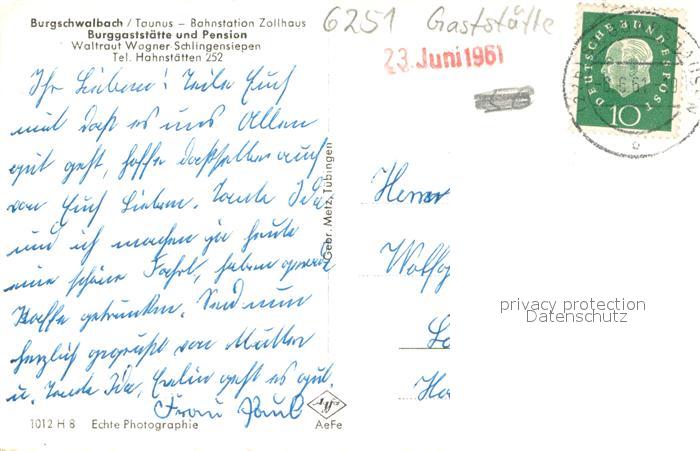 Burgschwalbach / Taunus – Bahnstation Zollhaus
Burggaststätte und Pension
Waltraut Wagner-Schlingensiepen
Tel. Hahnstätten 252
6251 Gaststätte
23. Juni 1961
DEUTSCHE BUNDESPOST
10
Ihr Lieben! Teile Euch
mit daß es uns Allen
gut geht, hoffe dasselbe auch
von Euch Lieben. Tante Ida
und ich machen ja heute
eine schöne Fahrt, haben gerade
Kaffe getrunken. Seid nun
herzlich gegrüßt von Mutter
u. Tante Ida, geht es gut.
Frau
Gebr. Metz, Tübingen
Herrn
Wolfg
privacy protection
Datenschutz
1012 H 8 Echte Photographie
AeFe